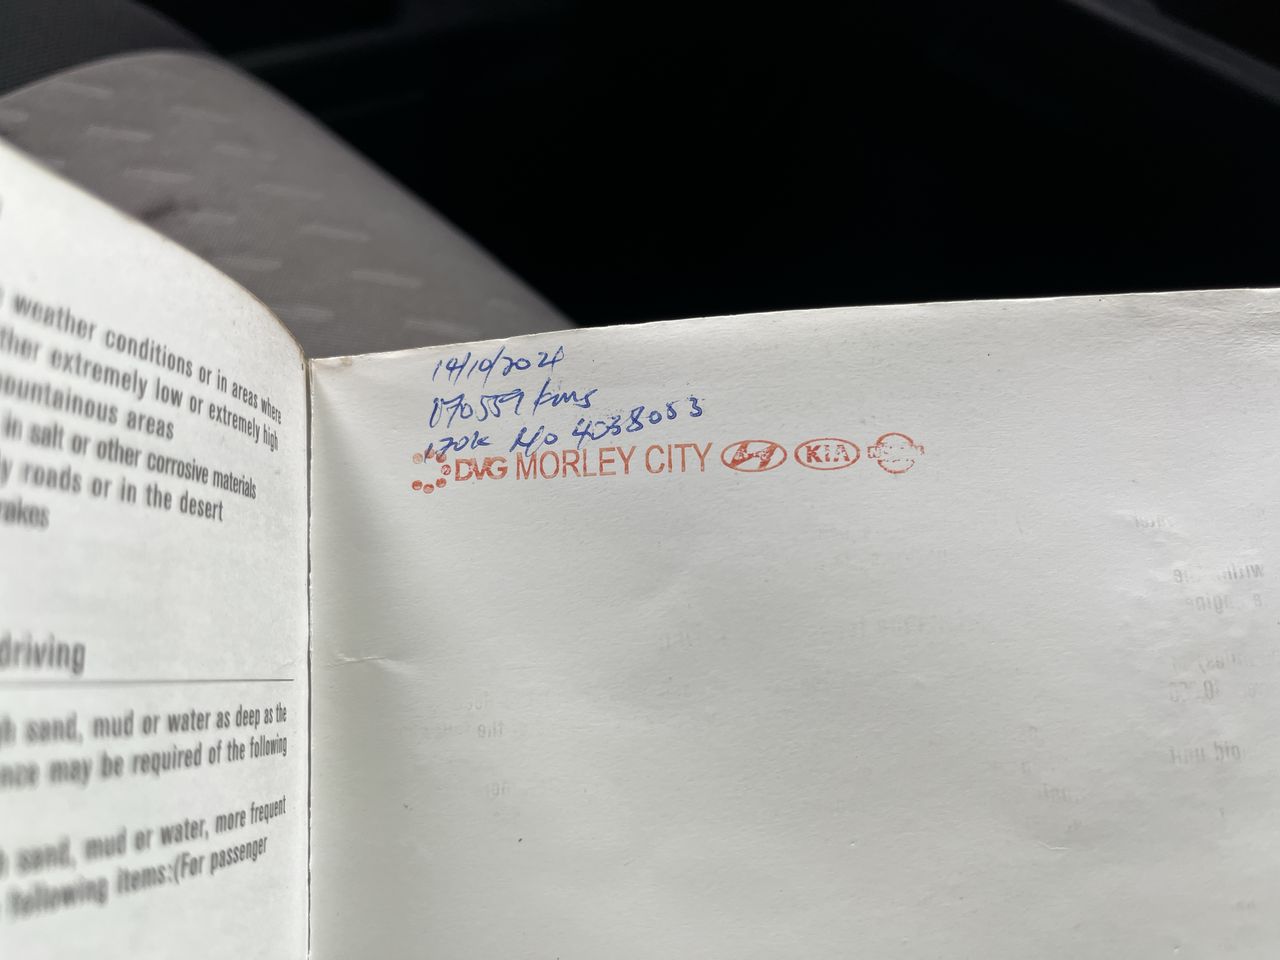 weather conditions or in areas where
ther extremely low or extremely high
ountainous areas
in salt or other corrosive materials
y roads or in the desert
rakes
driving
gh sand, mud or water as deep as the
nce may be required of the following
sand, mud or water, more frequent
following items:(For passenger
14/10/2021
170559 kms
170k R/o 4038053
DVG MORLEY CITY KIA NISSAN